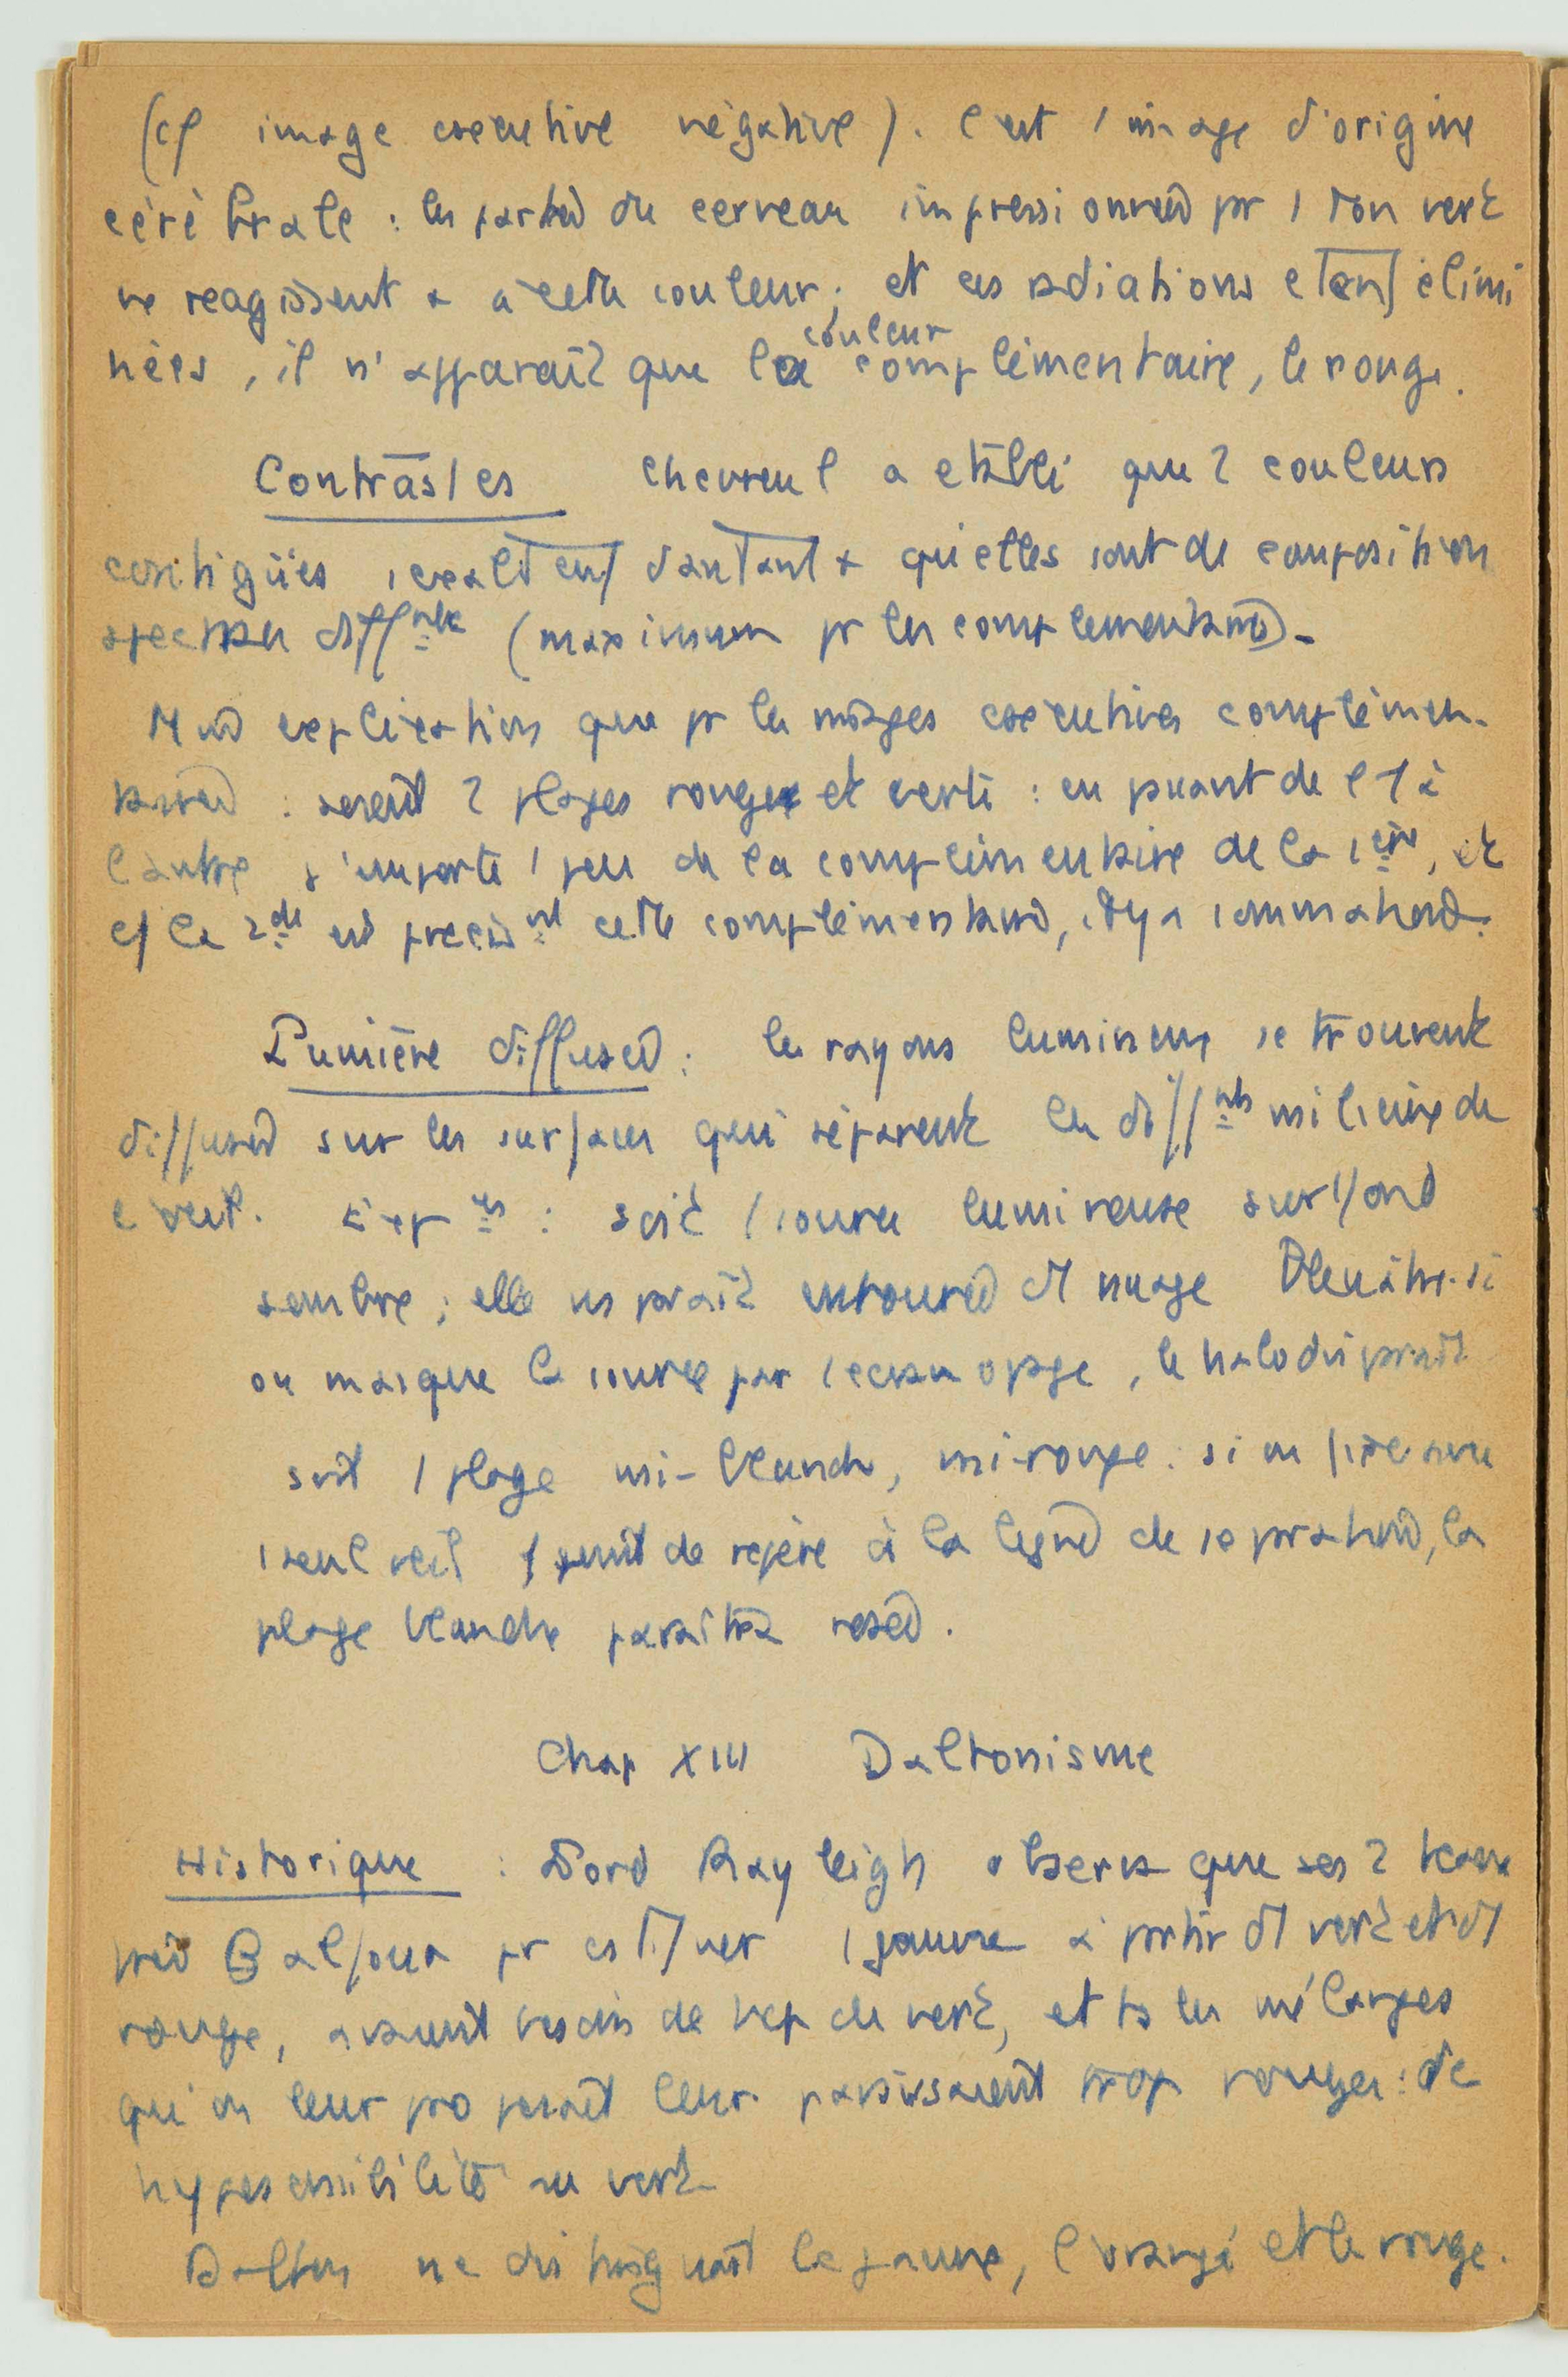 (cf image coécutive négative). C'est 1 image d'origine
cérébrale : les parties du cerveau impressionnées pr 1 ton vert
ne réagissent + à cette couleur ; et ces radiations étant élimi
nées, il n'apparaît que la couleur complémentaire, le rouge.
Contrastes Chevreul a établi que 2 couleurs
contigües s'exaltent d'autant + qu'elles sont de composition
spectrale diffnte (maximum pr les complémentaires).
M explication que pr les images coécutives complémen-
taires : soient 2 plages rouge et verte : en passant de l'1 à
l'autre, j'emporte 1 peu de la complémentaire de la 1ère, et
c/ la 2de est précisnt cette complémentaire, il y a sommation.
Lumière diffusée : les rayons lumineux se trouvent
diffusés sur les surfaces qui séparent les diffnts milieux de
l'oeil. Expces : soit 1 source lumineuse sur 1 fond
sombre ; elle ns paraît entourée d'1 nuage bleuâtre. si
on masque la source par 1 écran opaque, le halo disparaît
soit 1 plage mi-blanche, mi-rouge. si on fixe avec
1 seul oeil 1 point de repère à la ligne de séparation, la
plage blanche paraîtra rosée.
Chap XIII Daltonisme
Historique : Lord Rayleigh observa que ses 2 beaux
frères Balfour pr estimer 1 jaune à partir d'1 vert et d'1
rouge, avaient besoin de bcp de vert, et ts les mélanges
qu'on leur proposait leur paraissaient trop rouges : de
hyposensibilité au vert.
Dalton ne distinguait le jaune, l'orangé et le rouge.